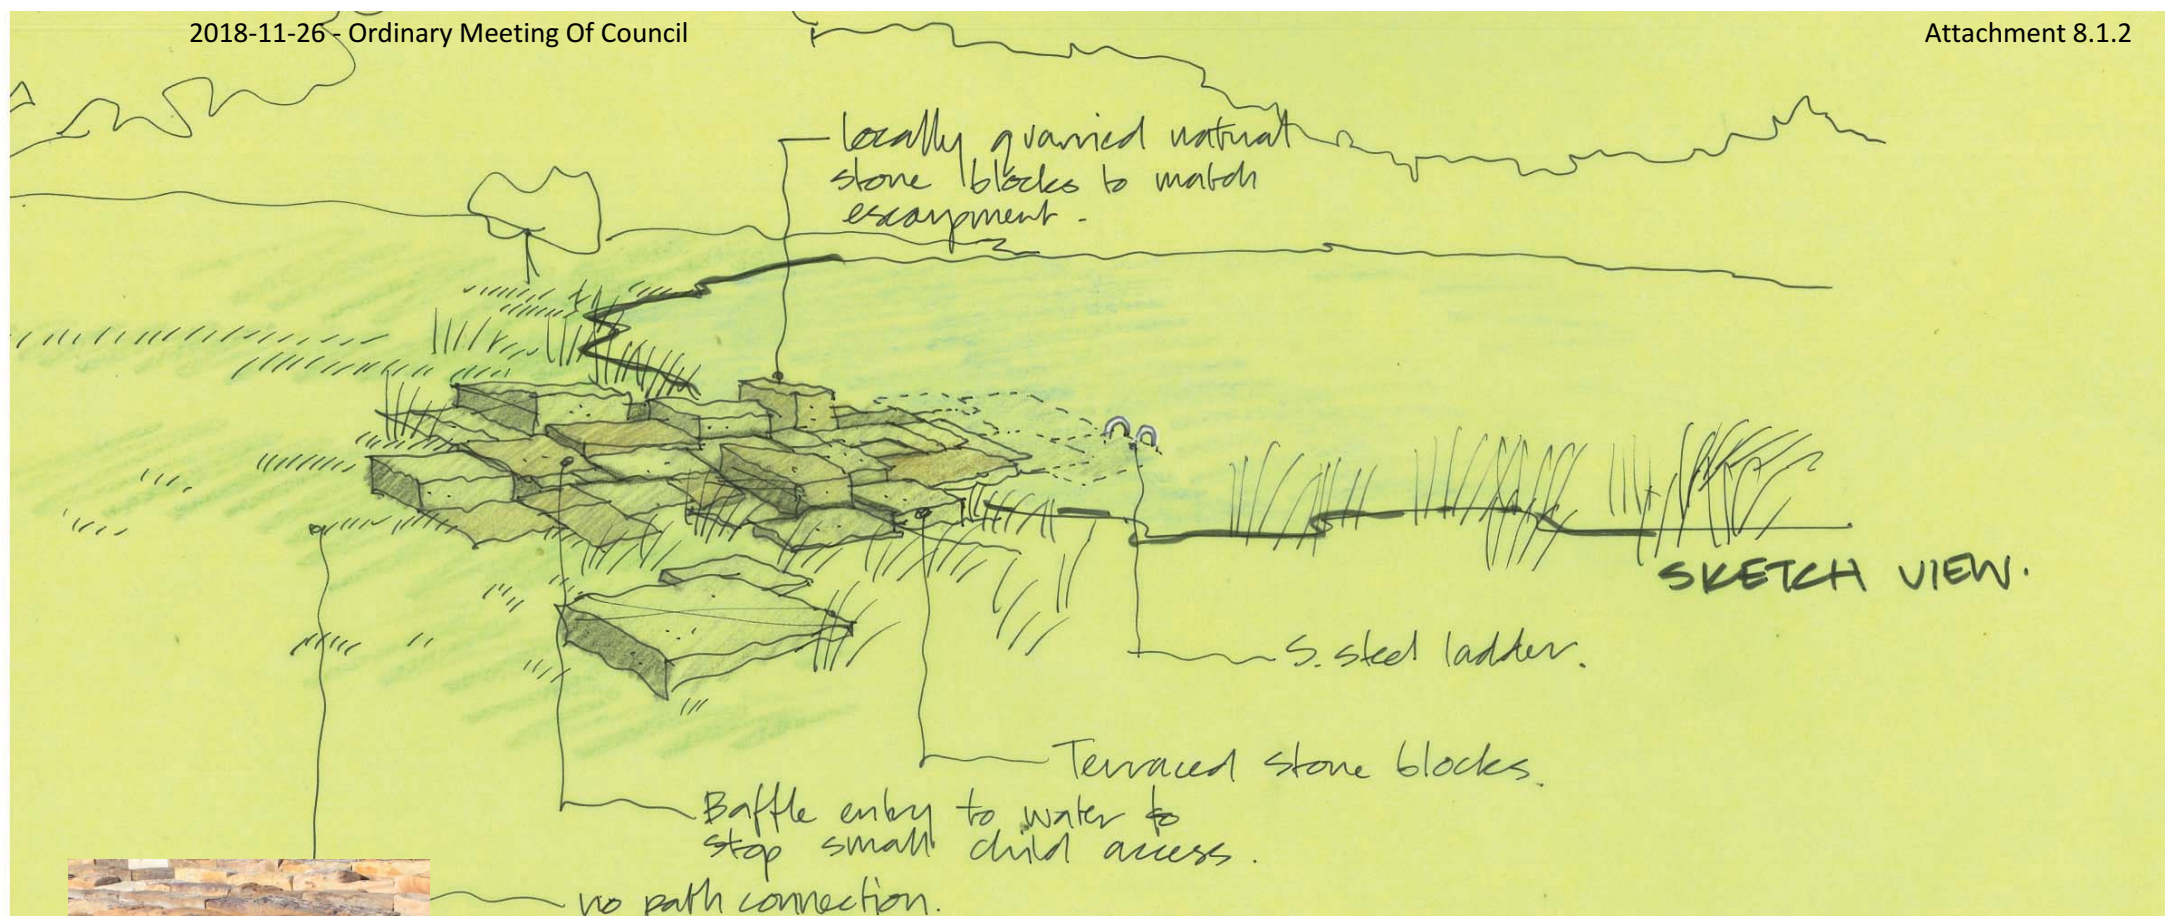 2018-11-26 - Ordinary Meeting Of Council
Attachment 8.1.2
locally quarried natural
stone blocks to match
escarpment.
SKETCH VIEW.
S. steel ladder.
Terraced stone blocks.
Baffle entry to water to
stop small child access.
no path connection.